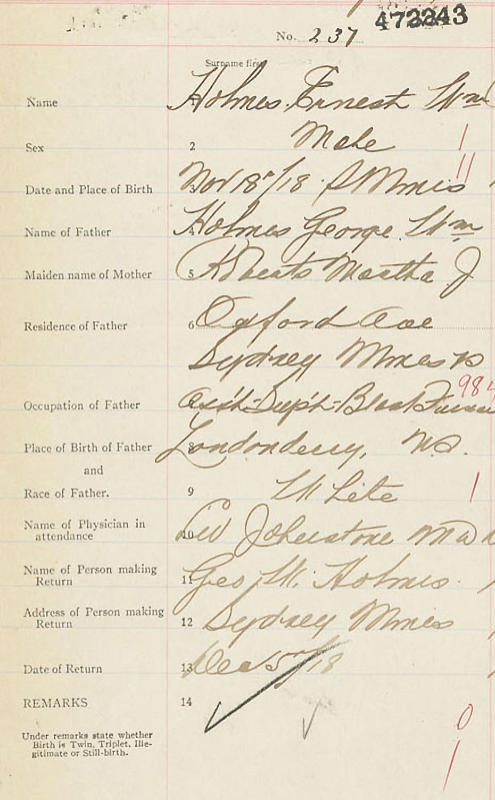 472243
No. 237
Surname first
Name 1 Holmes, Ernest Wm
Sex 2 Male 1
11
Date and Place of Birth 3 Nov 18th/18 S Mines
Name of Father 4 Holmes George Wm
Maiden name of Mother 5 Roberts Martha J
Residence of Father 6 Oxford Ave
Sydney Mines
984
Occupation of Father Ass't-Sup't-Blast Furnace
Place of Birth of Father 8 Londonderry, N.S.
and
Race of Father. 9 White 1
Name of Physician in
attendance 10 Johnstone M D
Name of Person making
Return 11 Geo. W. Holmes.
Address of Person making
Return 12 Sydney Mines
Date of Return 13 Dec 5th/18
REMARKS 14
0
Under remarks state whether
Birth is Twin, Triplet, Ille-
gitimate or Still-birth.
1